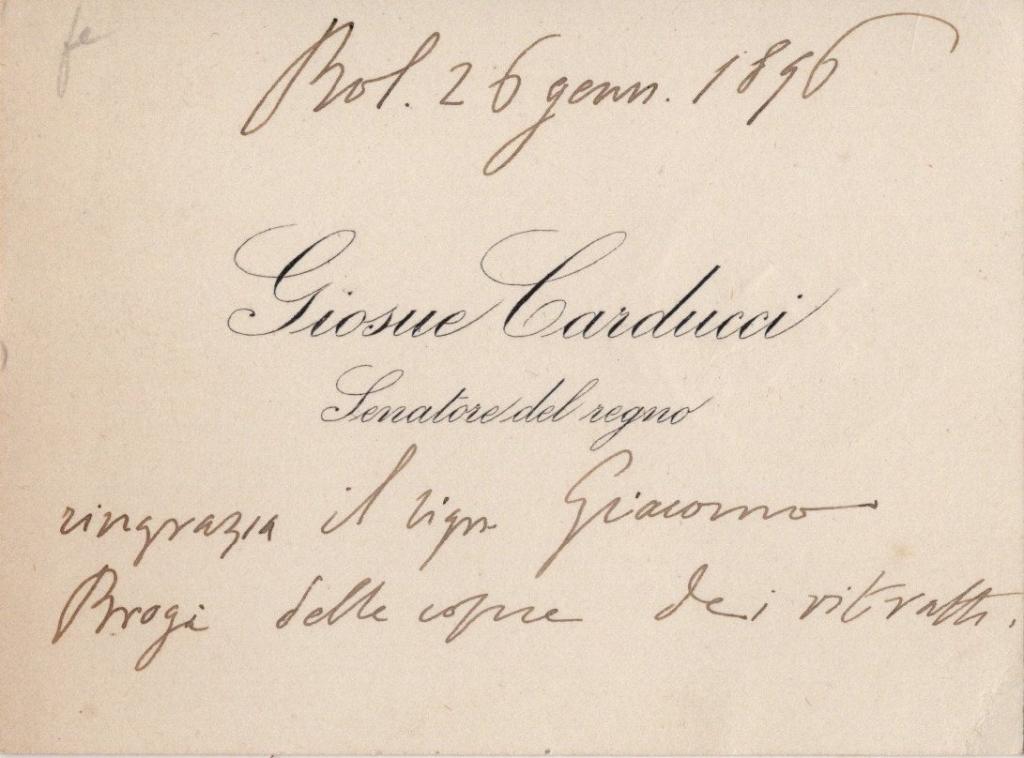 fe
Bol. 26 genn. 1896
Giosue Carducci
Senatore del regno
ringrazia il sign Giacomo
Brogi delle copie dei ritratti.